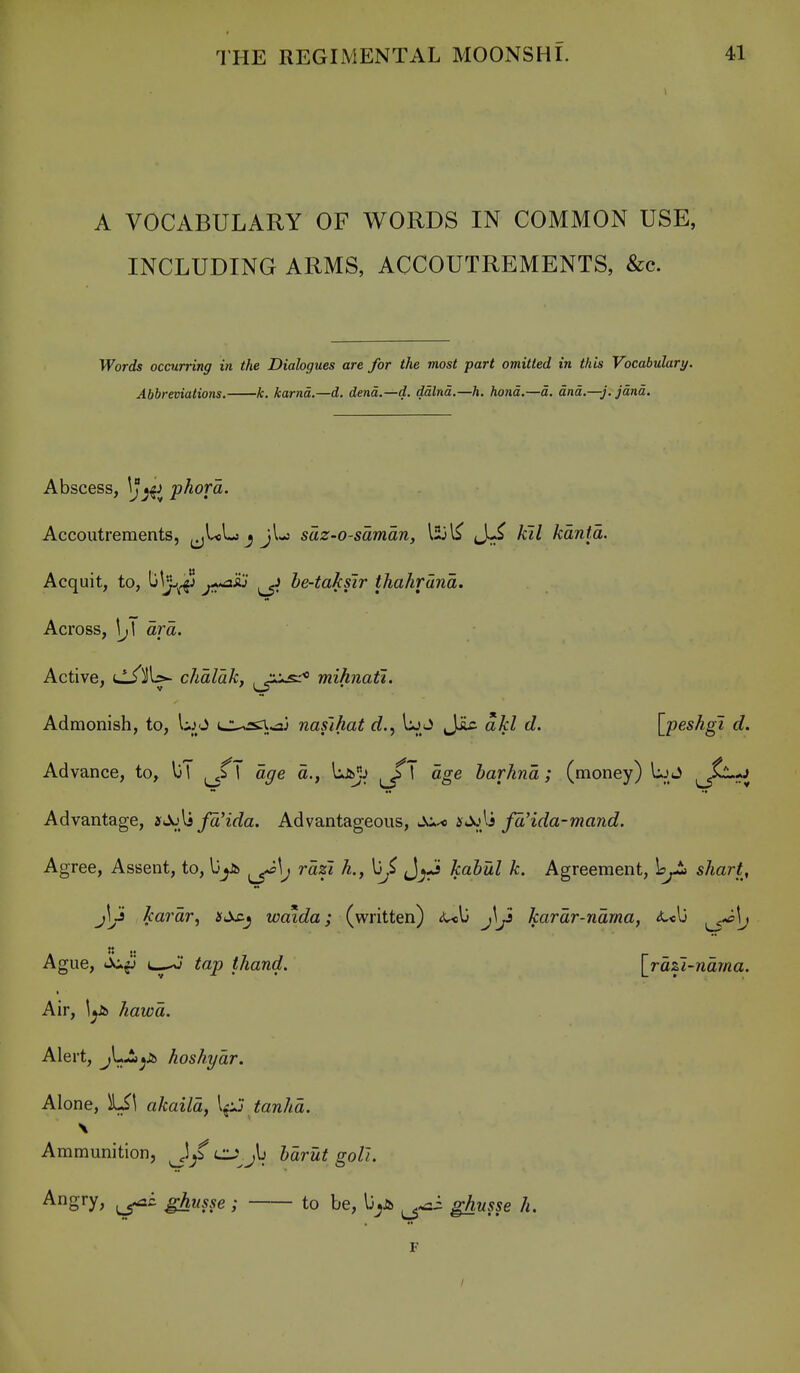 THE REGIMENTAL MOONSHĪ. 41
A VOCABULARY OF WORDS IN COMMON USE,
INCLUDING ARMS, ACCOUTREMENTS, &c.
Words occurring in the Dialogues are for the most part omitted in this Vocabulary.
Abbreviations.——k. karnā.—d. denā.—ḍ. ḍālnā.—h. honā.—ā. ānā.—j. jānā.
Abscess, پھوڑا phoṛā.
Accoutrements, ساز و سامان sāz-o-sāmān, کیل کانٹا kīl kānṭā.
Acquit, to, بے تقصیر ٹھیرانا be-taḳṣīr ṭhahrānā.
Across, آڑا āṛā.
Active, چالاک chālāk, محنتی miḥnatī.
Admonish, to, نصیحت دینا naṣīḥat d., عقل دینا ăḳl d. [peshgī d.
Advance, to, آگے آنا āge ā., آگے بڑھنا āge baṛhnā; (money) پیشگی دینا
Advantage, فائدہ fā'ida. Advantageous, فائدہ مند fā'ida-mand.
Agree, Assent, to, راضی ہونا rāẓī h., قبول کرنا ḳabūl k. Agreement, شرط sharṭ,
قرار ḳarār, وعدہ wăīda; (written) قرار نامہ ḳarār-nāma, راضی نامہ
Ague, تپ ٹھنڈ tap ṭhanḍ. [rāẓī-nāma.
Air, ہوا hawā.
Alert, ہوشیار hoshyār.
Alone, اکیلا akailā, تنہا tanhā.
Ammunition, باروت گولی bārūt golī.
Angry, غصے ghuṣṣe; —— to be, غصے ہونا ghuṣṣe h.
F